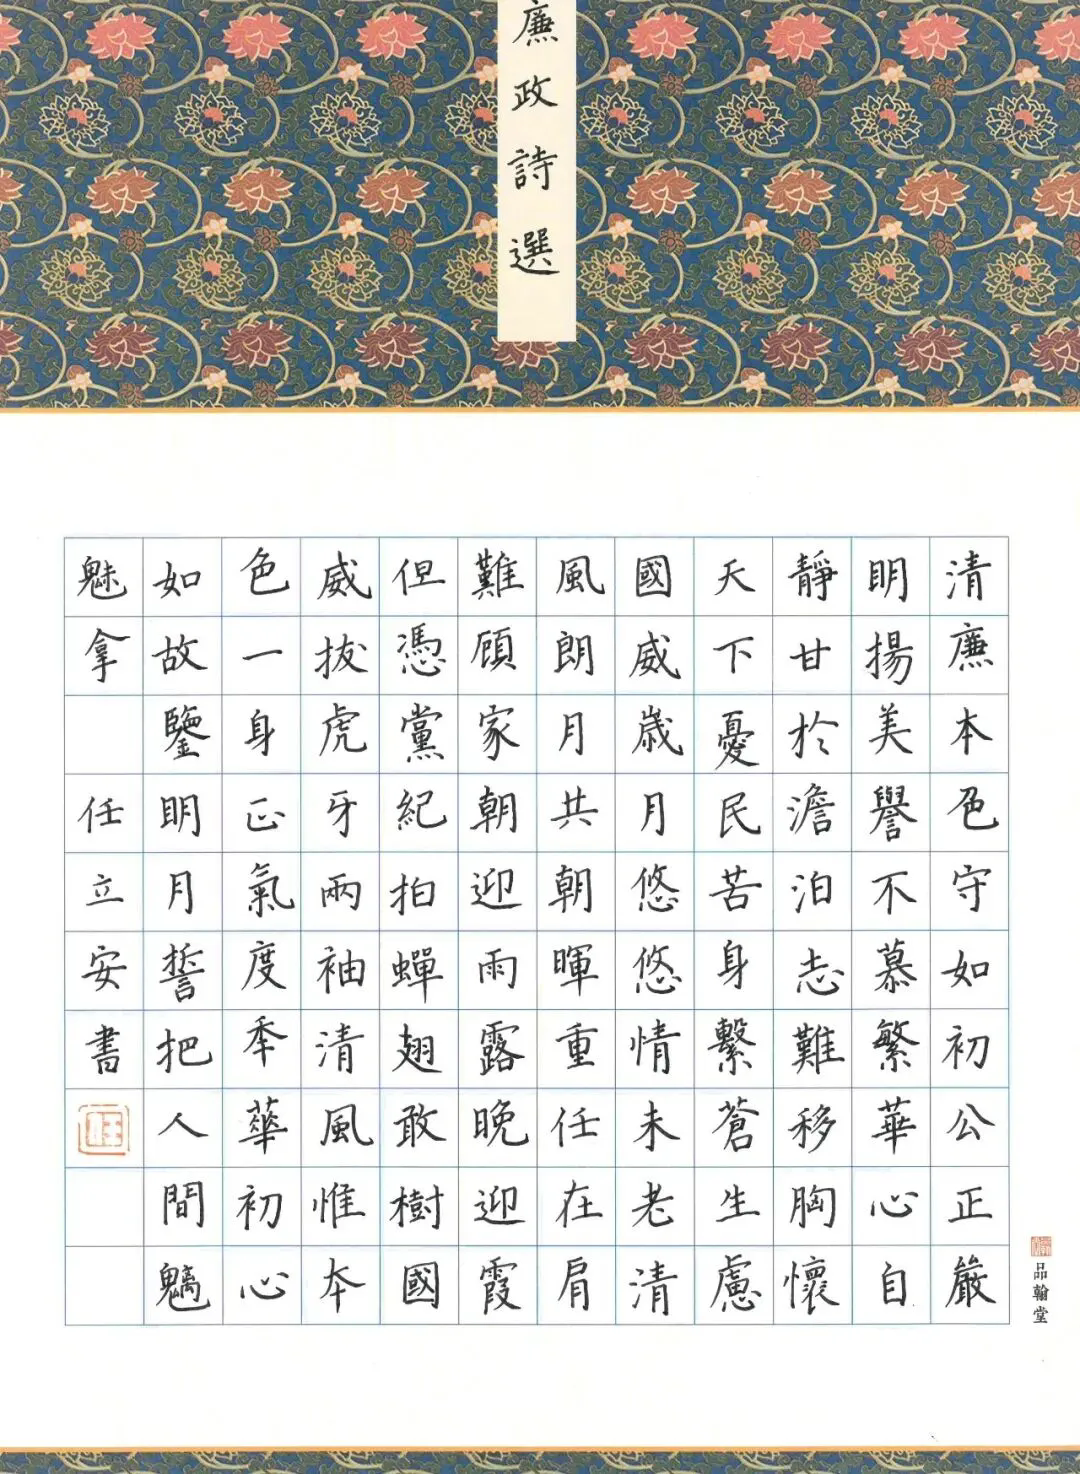 廉政詩選
清廉本色守如初公正嚴
明揚美譽不慕繁華心自
靜甘於澹泊志難移胸懷
天下憂民苦身繫蒼生慮
國威歲月悠悠情未老清
風朗月共朝暉重任在肩
難顧家朝迎雨露晚迎霞
但憑黨紀拍蟬翅敢樹國
威拔虎牙兩袖清風惟本
色一身正氣度年華初心
如故鑒明月誓把人間魑
魅拿 任立安書
品翰堂